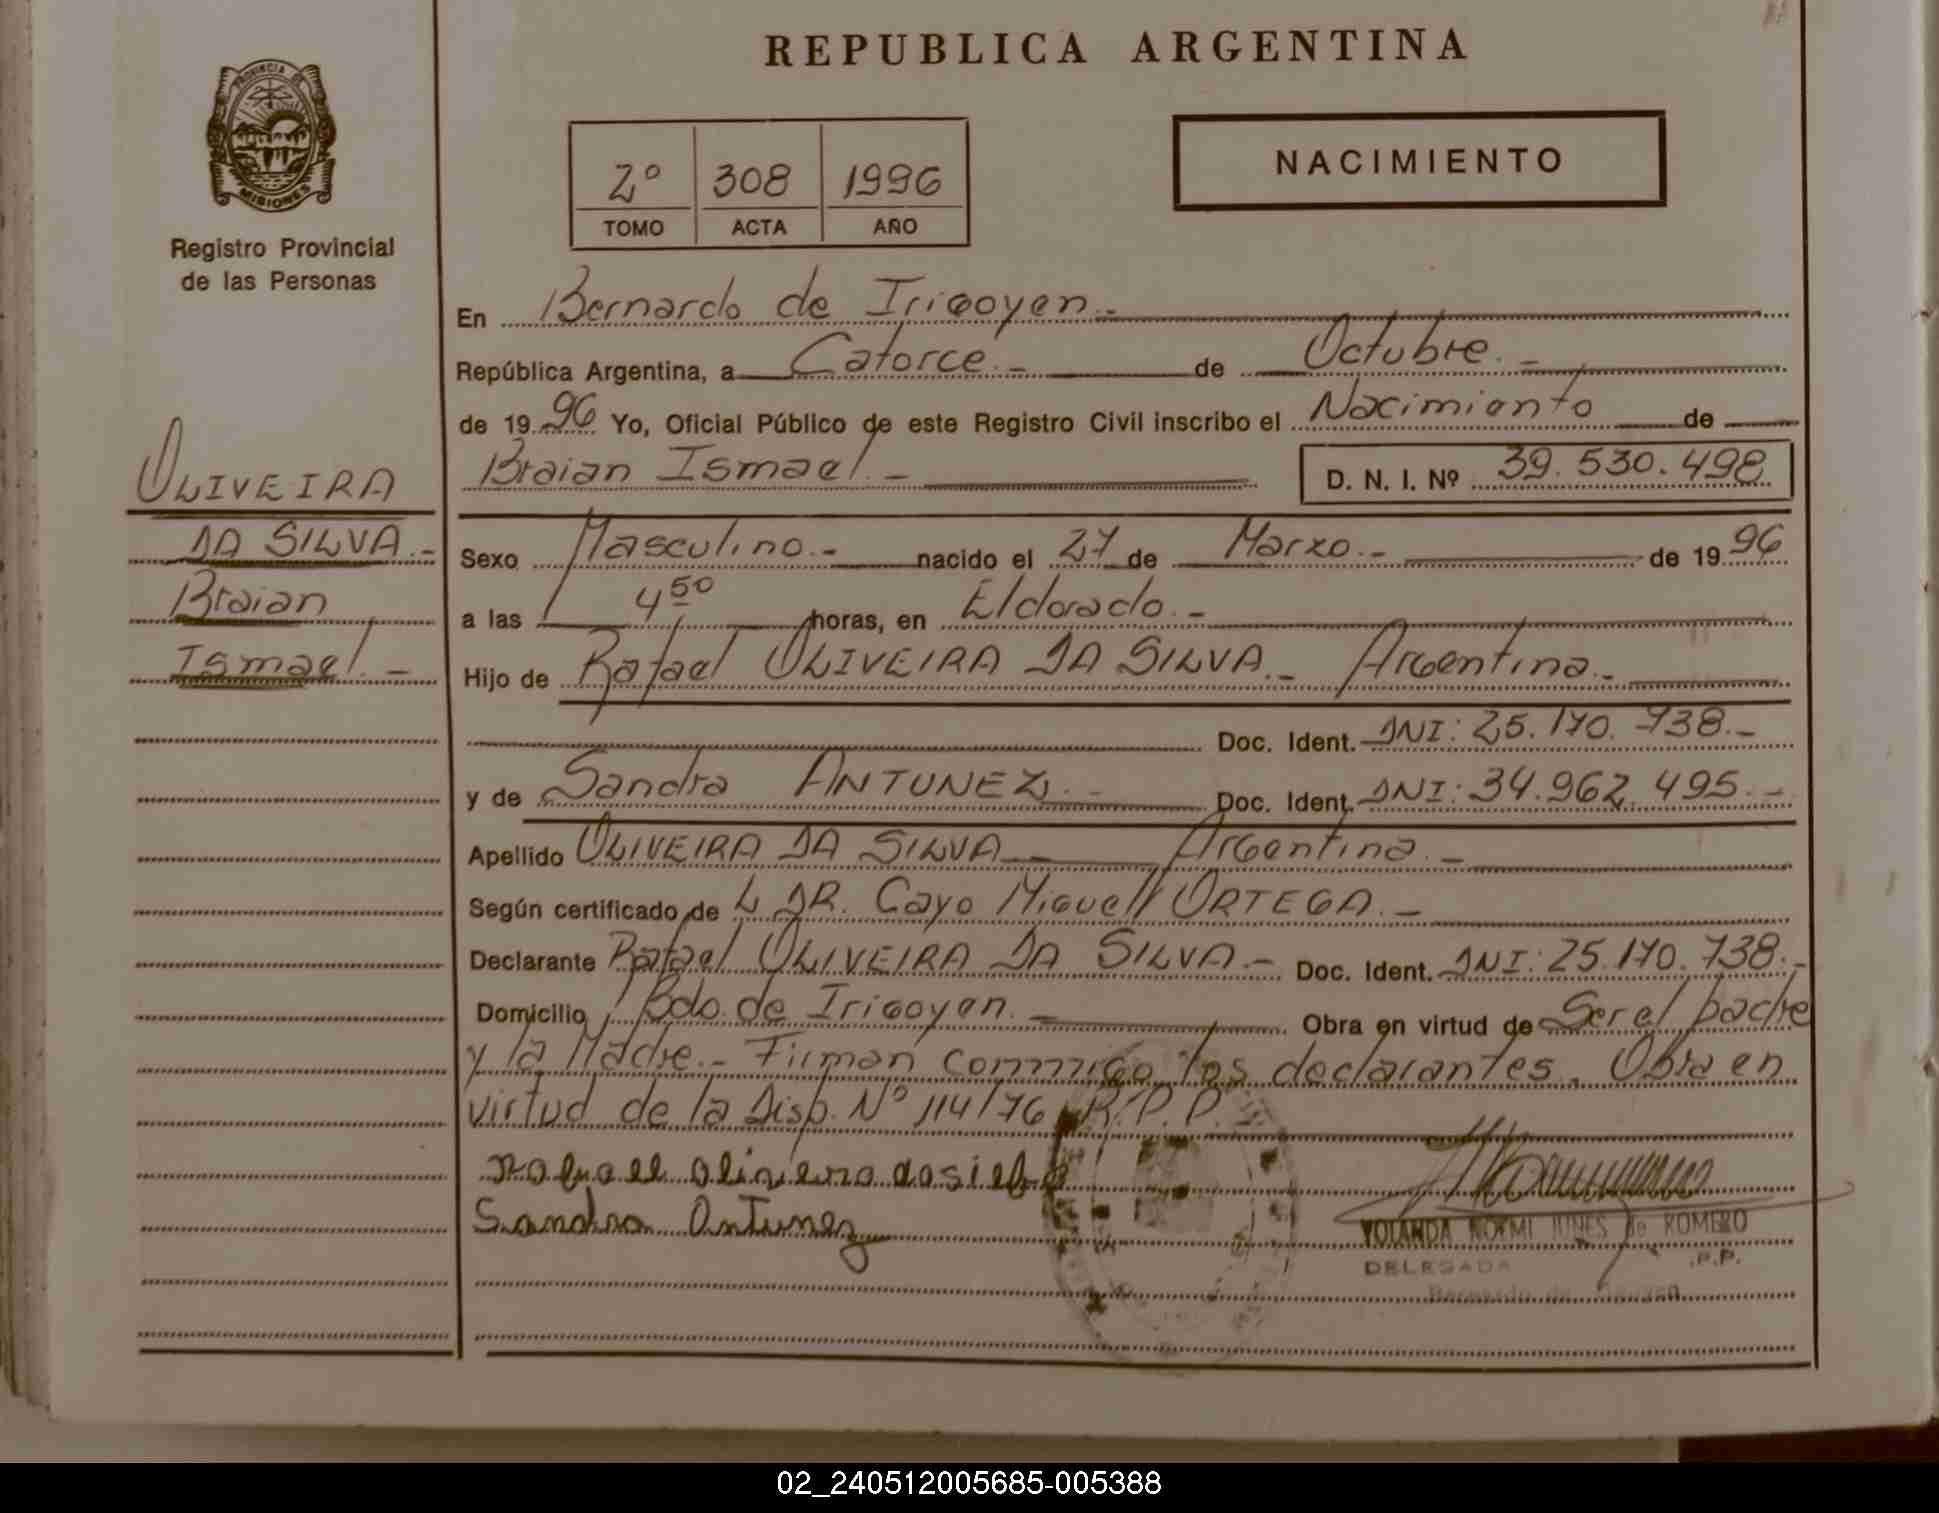 REPUBLICA ARGENTINA
PROVINCIA DE
MISIONES
Registro Provincial
de las Personas
2º 308 1996
TOMO ACTA AÑO
NACIMIENTO
OLIVEIRA
DA SILVA.-
Braian
Ismael.-
En Bernardo de Irigoyen.-
República Argentina, a Catorce.- de Octubre.-
de 1996 Yo, Oficial Público de este Registro Civil inscribo el Nacimiento de
Braian Ismael.- D. N. I. Nº 39.530.498
Sexo Masculino.- nacido el 27 de Marzo.- de 1996
a las 4 50 horas, en Eldorado.-
Hijo de Rafael OLIVEIRA DA SILVA.- Argentina.-
Doc. Ident. DNI: 25.170.738.-
y de Sandra ANTUNEZ.- Doc. Ident. DNI: 34.962.495.-
Apellido OLIVEIRA DA SILVA Argentina.-
Según certificado de L DR. Cayo Miguel ORTEGA.-
Declarante Rafael OLIVEIRA DA SILVA.- Doc. Ident. DNI: 25.170.738.-
Domicilio Bdo. de Irigoyen.- Obra en virtud de Ser el padre
y la Madre.- Firman conmigo los declarantes. Obra en
virtud de la Disp. Nº 114/76 R.P.P.-
Sandra Antunez
YOLANDA NOEMI JUNES de ROMERO
DELEGADA
02_240512005685-005388